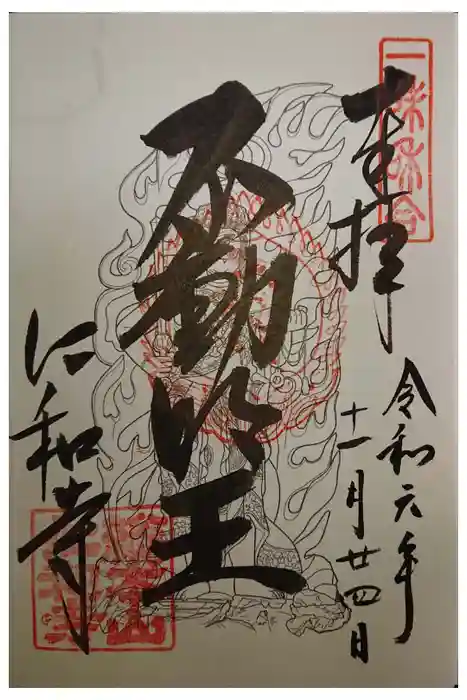 奉拝
一味和合
令和六年
十一月廿四日
不動明王
仁和寺